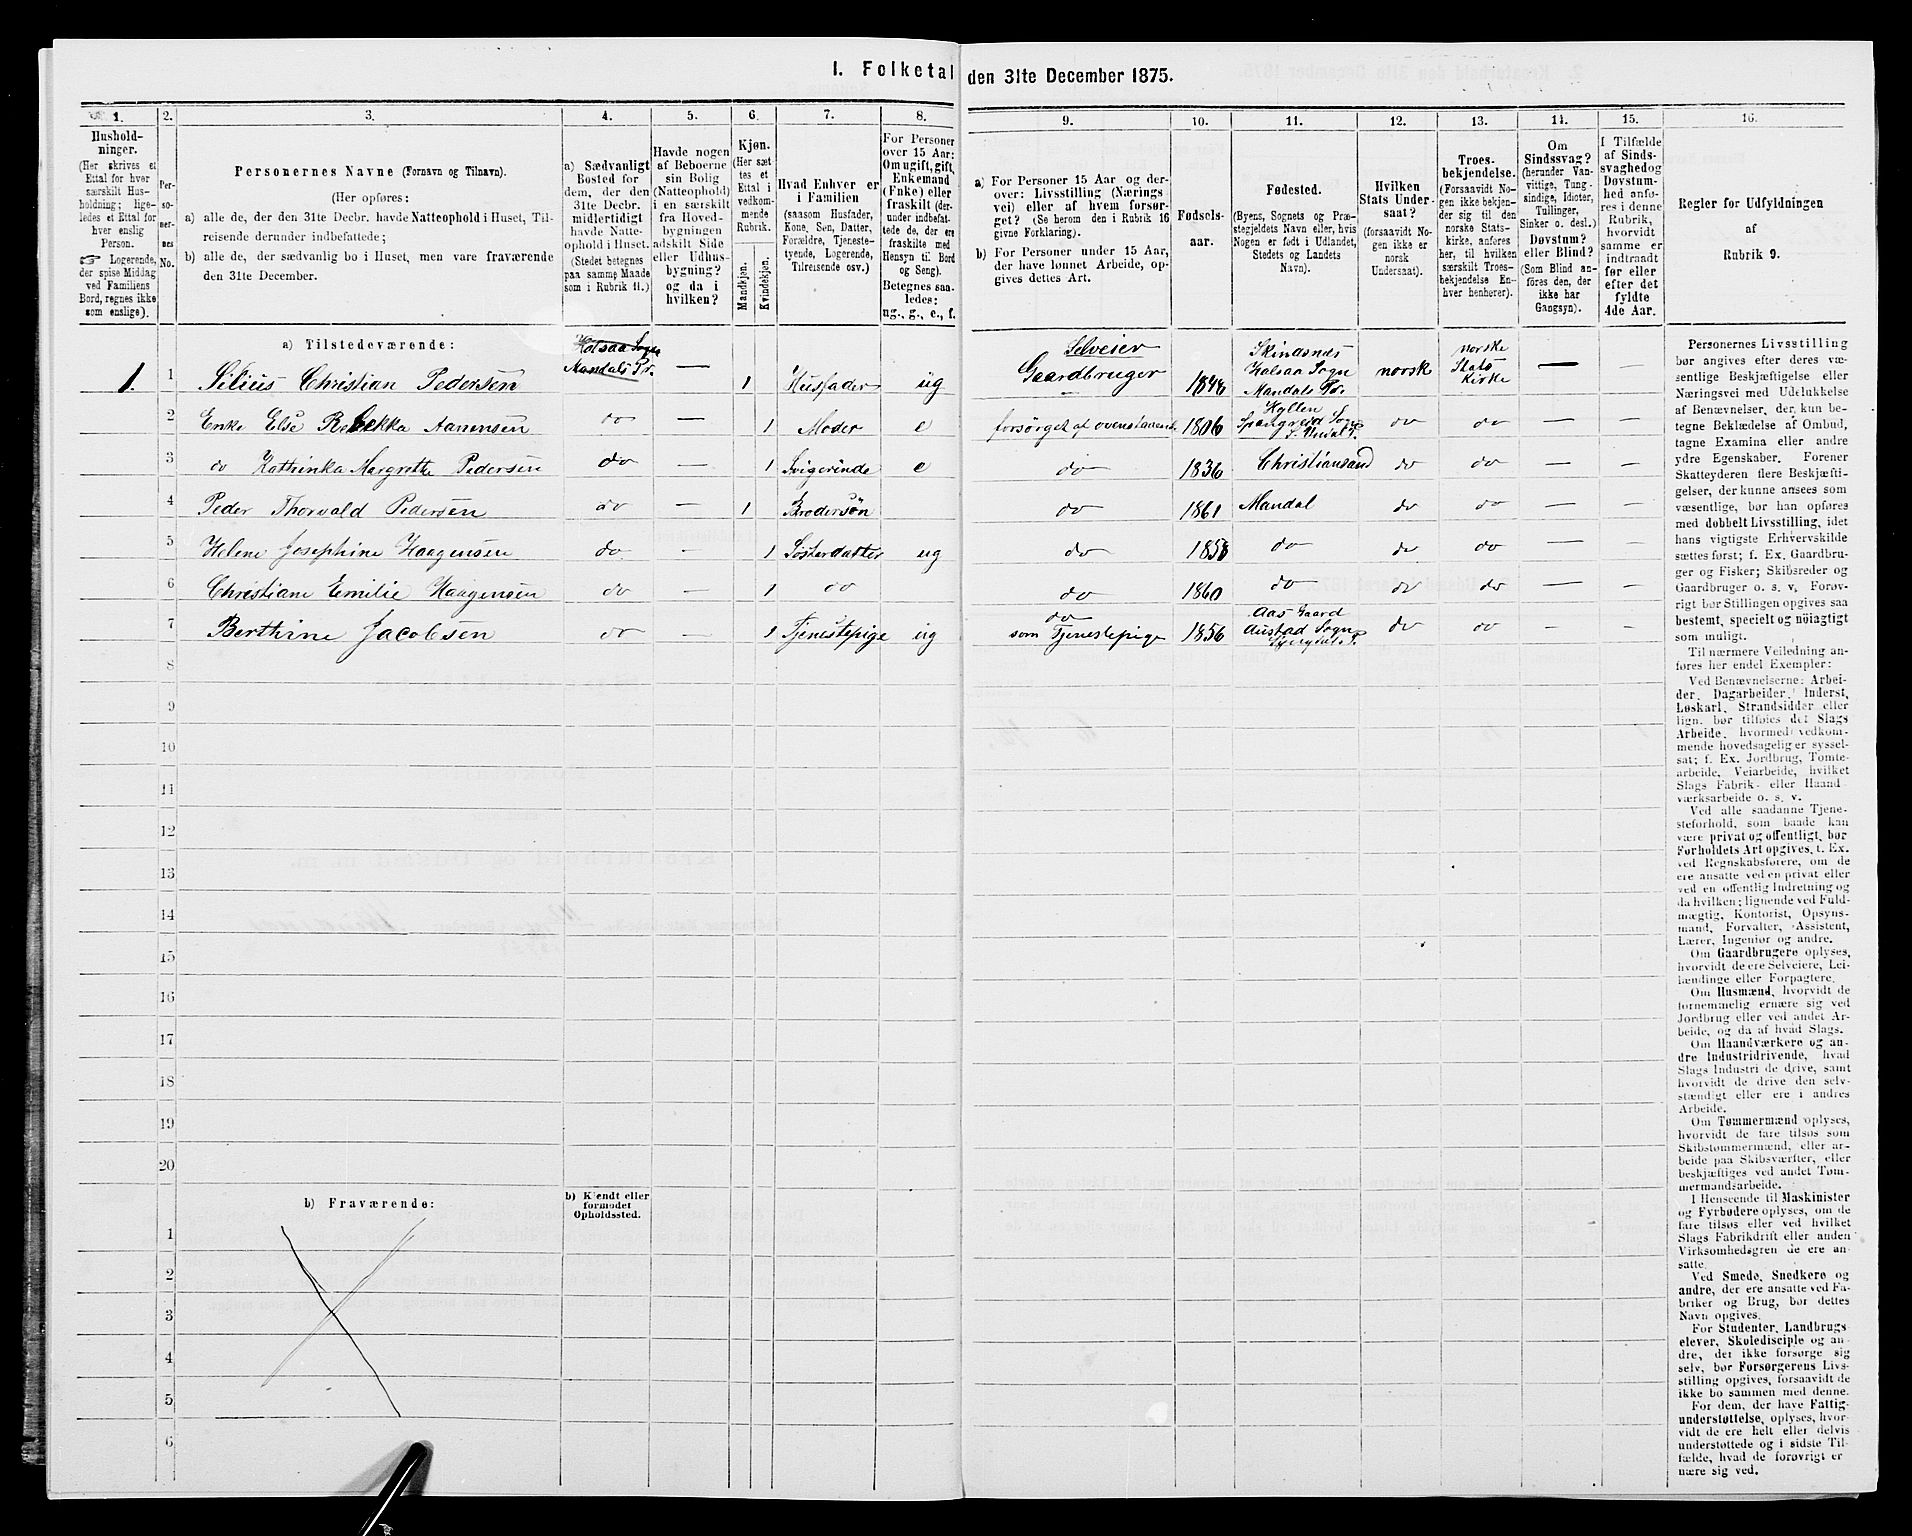 I. Folketal den 31te December 1875.
1. 2. 3. 4. 5. 6. 7. 8. 9. 10. 11. 12. 13. 14. 15. 16.
Hushold-
ninger.
(Her skrives et
Ettal for hver
særskilt Hus-
holdning; lige-
ledes et Ettal for
hver enslig
Person.
☞ Logerende,
der spise Middag
ved Familiens
Bord, regnes ikke
som enslige).
Per-
so-
ner-
nes
No.
Personernes Navne (Fornavn og Tilnavn).
(Her opføres:
a) alle de, der den 31te Decbr. havde Natteophold i Huset, Til-
reisende derunder indbefattede;
b) alle de, der sædvanlig bo i Huset, men vare fraværende
den 31te December.
a) Sædvanligt
Bosted for
dem, der den
31te Decbr.
midlertidigt
havde Natte-
ophold i Huset.
(Stedet betegnes
paa samme Maade
som i Rubrik 11.)
Havde nogen
af Beboerne
sin Bolig
(Natteophold)
i en særskilt
fra Hoved-
bygningen
adskilt Side
eller Udhus-
bygning?
og da i
hvilken?
Kjøn.
(Her sæt-
tes et
Ettal i
vedkom-
mende
Rubrik.
Mandkjøn.
Kvindekjøn.
Hvad Enhver er
i Familien
(saasom Husfader,
Kone, Søn, Datter,
Forældre, Tjeneste-
tyende, Logerende,
Tilreisende osv.)
For Personer
over 15 Aar:
Om ugift, gift,
Enkemand
(Enke) eller
fraskilt (der-
under indbefat-
tede de, der ere
fraskilte med
Hensyn til Bord
og Seng).
Betegnes saa-
ledes:
ug., g., e., f.
a) For Personer 15 Aar og der-
over: Livsstilling (Nærings-
vei) eller af hvem forsør-
get? (Se herom den i Rubrik 16
givne Forklaring).
b) For Personer under 15 Aar,
der have lønnet Arbeide, op-
gives dettes Art.
Fødsels-
aar.
Fødested.
(Byens, Sognets og Præ-
stegjeldets Navn eller, hvis
Nogen er født i Udlandet,
Stedets og Landets
Navn).
Hvilken
Stats Under-
saat?
(forsaavidt No-
gen ikke er
norsk
Undersaat).
Troes-
bekjendelse.
(Forsaavidt No-
gen ikke bekjen-
der sig til den
norske Stats-
kirke, anføres
her, til hvilken
særskilt Troes-
bekjendelse En-
hver henhører).
Om
Sindssvag?
(herunder Van-
vittige, Tung-
sindige, Idioter,
Tullinger,
Sinker o. desl.)
Døvstum?
eller Blind?
(Som Blind an-
føres den, der
ikke har
Gangsyn).
I Tilfælde
af Sinds-
svaghed og
Døvstum-
hed anfø-
res i denne
Rubrik,
hvorvidt
samme er
indtraadt
før eller
efter det
fyldte
4de Aar.
Regler for Udfyldningen
af
Rubrik 9.
a) Tilstedeværende:
Holsaa Sogn
Mandals Pr.
1. 1 Silius Christian Pedersen — 1 Husfader ug Selveier Gaardbruger 1846 Skinsnes Halsaa Sogn Mandals Pr. norsk norske Stats Kirke — —
2 Enke Else Rebekka Aanensen do — 1 Moder e forsørget af ovenstaaende 1806 Kyllen Spangereid Sogn do do — —
3 do Kathrinka Margrethe Pedersen do — 1 Svigerinde e do 1836 Christiansand do do — —
4 Peder Thorvald Pedersen do — 1 Brodersøn do 1861 Mandal do do — —
5 Helene Josephine Haagensen do — 1 Søsterdatter ug do 1858 do do do — —
6 Christiane Emilie Haagensen do — 1 do do 1860 do do do — —
7 Berthine Jacobsen do — 1 Tjenestepige ug do som Tjenestepige 1856 Aas Gaard Austad Sogn do do — —
8
9
10
11
12
13
14
15
16
17
18
19
20
b) Fraværende:
b) Kjendt eller
formodet
Opholdssted.
1
2
3
4
5
6
Personernes Livsstilling
bør angives efter deres væ-
sentlige Beskjæftigelse eller
Næringsvei med Udelukkelse
af Benævnelser, der kun be-
tegne Beklædelse af Ombud,
tagne Examina eller andre
ydre Egenskaber. Forener
Skatteyderen flere Beskjæfti-
gelser, der kunne ansees som
væsentlige, bør han opføres
med dobbelt Livsstilling, idet
hans vigtigste Erhvervskilde
sættes først; f. Ex. Gaardbru-
ger og Fisker; Skibsreder og
Gaardbruger o. s. v. Forøv-
rigt bør Stillingen opgives saa
bestemt, specielt og nøiagtigt
som muligt.
Til nærmere Veiledning an-
føres her endel Exempler:
Ved Benævnelserne: Arbei-
der, Dagarbeider, Inderst,
Løskarl, Strandsidder eller
lign. bør tilføies det Slags
Arbeide, hvormed vedkom-
mende hovedsagelig er syssel-
sat; f. Ex. Jordbrug, Tomte-
arbeide, Veiarbeide, hvilket
Slags Fabrik- eller Haand-
værksarbeide o. s. v.
Ved alle saadanne Tjene-
steforhold, som baade kan
være privat og offentligt, bør
Forholdets Art opgives, t. Ex.
ved Regnskabsførere, om de
ere ansatte ved en privat eller
ved en offentlig Indretning og
da hvilken; lignende ved Fuld-
mægtig, Kontorist, Opsyns-
mand, Forvalter, Assistent,
Lærer, Ingeniør og andre.
Om Gaardbrugere oplyses,
hvorvidt de ere Selveiere, Lei-
lændinge eller Forpagtere.
Om Husmænd, hvorvidt de
fornemmelig ernære sig ved
Jordbrug eller ved andet Ar-
beide, og da af hvad Slags.
Om Haandværkere og an-
dre Industridrivende, hvad
Slags Industri de drive, samt
hvorvidt de drive den selv-
stændigt eller ere i andres
Arbeide.
Om Tømmermænd oplyses,
hvorvidt de fare tilsøs som
Skibstømmermænd, eller ar-
beide paa Skibsværfter, eller
beskjæftiges ved andet Tøm-
mermandsarbeide.
I Henseende til Maskinister
og Fyrbødere oplyses, om de
fare tilsøs eller ved hvilket
Slags Fabrikdrift eller anden
Virksomhedsgren de ere an-
satte.
Ved Smede, Snedkere og
andre, der ere ansatte ved Fa-
briker og Brug, bør dettes
Navn opgives.
For Studenter, Landbrugs-
elever, Skoledisciple og an-
dre, der ikke forsørge sig
selv, bør Forsørgerens Livs-
stilling opgives, forsaavidt de
ikke bo sammen med denne.
For dem, der have Fattig-
understøttelse, oplyses, hvor-
vidt de ere helt eller delvis
understøttede og i sidste Til-
fælde, hvad de forøvrigt er-
nære sig ved.